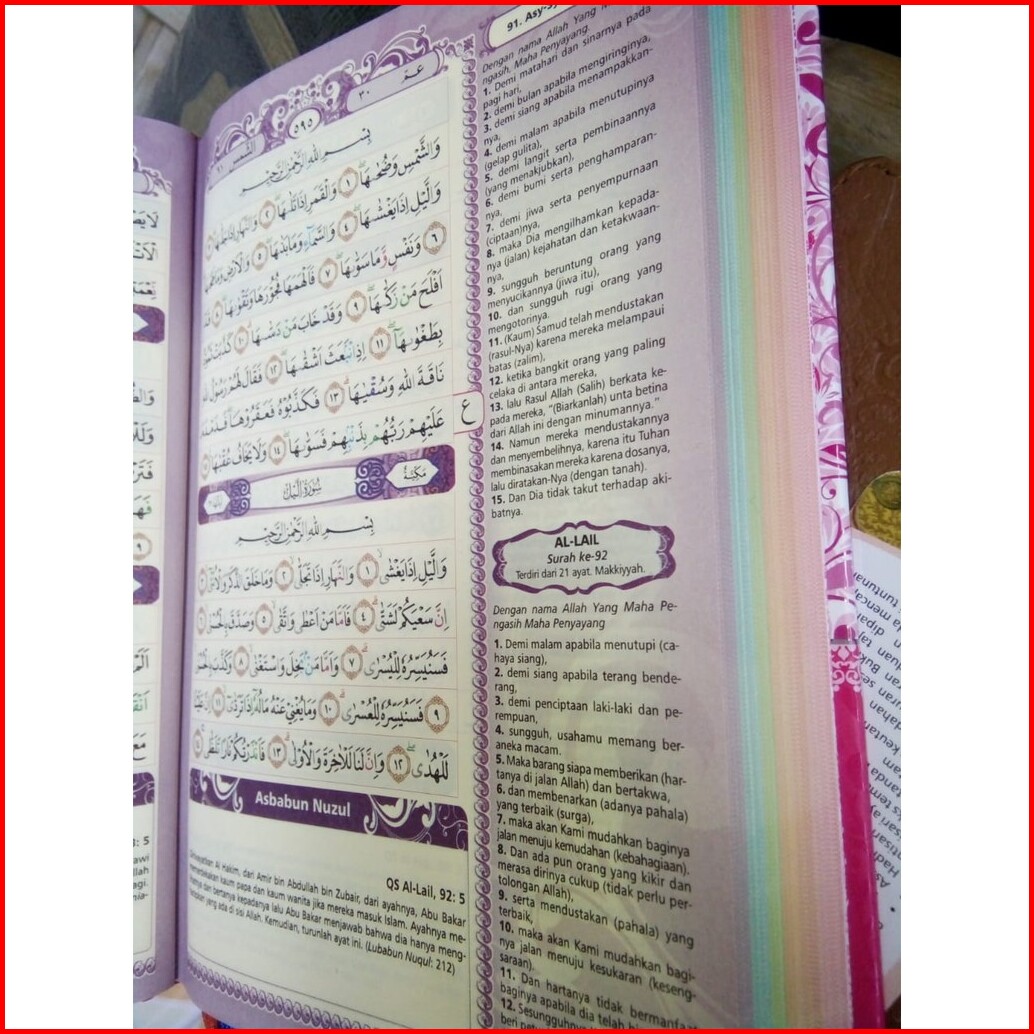 عـمّ
٣٠
٥٩٥
الشّمس ٩١
بِسْمِ اللّٰهِ الرَّحْمٰنِ الرَّحِيْمِ
وَالشَّمْسِ وَضُحٰىهَاۖ ١ وَالْقَمَرِ اِذَا تَلٰىهَاۖ ٢ وَالنَّهَارِ اِذَا جَلّٰىهَاۖ ٣
وَالَّيْلِ اِذَا يَغْشٰىهَاۖ ٤ وَالسَّمَاۤءِ وَمَا بَنٰىهَاۖ ٥ وَالْاَرْضِ وَمَا طَحٰىهَاۖ
٦ وَنَفْسٍ وَّمَا سَوّٰىهَاۖ ٧ فَاَلْهَمَهَا فُجُوْرَهَا وَتَقْوٰىهَاۖ ٨ قَدْ
اَفْلَحَ مَنْ زَكّٰىهَاۖ ٩ وَقَدْ خَابَ مَنْ دَسّٰىهَاۗ ١٠ كَذَّبَتْ ثَمُوْدُ
بِطَغْوٰىهَآۖ ١١ اِذِ انْۢبَعَثَ اَشْقٰىهَاۖ ١٢ فَقَالَ لَهُمْ رَسُوْلُ اللّٰهِ
نَاقَةَ اللّٰهِ وَسُقْيٰهَاۗ ١٣ فَكَذَّبُوْهُ فَعَقَرُوْهَاۖ فَدَمْدَمَ
عَلَيْهِمْ رَبُّهُمْ بِذَنْۢبِهِمْ فَسَوّٰىهَاۖ ١٤ وَلَا يَخَافُ عُقْبٰهَا ١٥
ع
مَكِّيَّةٌ
سُوْرَةُ الَّيْل
بِسْمِ اللّٰهِ الرَّحْمٰنِ الرَّحِيْمِ
وَالَّيْلِ اِذَا يَغْشٰىۙ ١ وَالنَّهَارِ اِذَا تَجَلّٰىۙ ٢ وَمَا خَلَقَ الذَّكَرَ وَالْاُنْثٰىٓۙ ٣
اِنَّ سَعْيَكُمْ لَشَتّٰىۗ ٤ فَاَمَّا مَنْ اَعْطٰى وَاتَّقٰىۙ ٥ وَصَدَّقَ بِالْحُسْنٰىۙ ٦
فَسَنُيَسِّرُهٗ لِلْيُسْرٰىۗ ٧ وَاَمَّا مَنْۢ بَخِلَ وَاسْتَغْنٰىۙ ٨ وَكَذَّبَ بِالْحُسْنٰىۙ
٩ فَسَنُيَسِّرُهٗ لِلْعُسْرٰىۗ ١٠ وَمَا يُغْنِيْ عَنْهُ مَالُهٗٓ اِذَا تَرَدّٰىۙ ١١ اِنَّ عَلَيْنَا
لَلْهُدٰىۖ ١٢ وَاِنَّ لَنَا لَلْاٰخِرَةَ وَالْاُوْلٰىۗ ١٣ فَاَنْذَرْتُكُمْ نَارًا تَلَظّٰىۚ ١٤
Asbabun Nuzul
QS Al-Lail, 92: 5
Diriwayatkan Al Hakim, dari Amir bin Abdullah bin Zubair, dari ayahnya, Abu Bakar
memerdekakan kaum papa dan kaum wanita jika mereka masuk Islam. Ayahnya me-
dan bertanya kepadanya lalu Abu Bakar menjawab bahwa dia hanya meng-
yang ada di sisi Allah. Kemudian, turunlah ayat ini. (Lubabun Nuqul: 212)
91. Asy-Sy
Dengan nama Allah Yang M
ngasih, Maha Penyayang.
1. Demi matahari dan sinarnya pada
pagi hari,
2. demi bulan apabila mengiringinya,
3. demi siang apabila menampakkan-
nya,
4. demi malam apabila menutupinya
(gelap gulita),
5. demi langit serta pembinaannya
(yang menakjubkan),
6. demi bumi serta penghamparan-
nya,
7. demi jiwa serta penyempurnaan
(ciptaan)nya,
8. maka Dia mengilhamkan kepada-
nya (jalan) kejahatan dan ketakwaan-
nya,
9. sungguh beruntung orang yang
menyucikannya (jiwa itu),
10. dan sungguh rugi orang yang
mengotorinya.
11. (Kaum) Samud telah mendustakan
(rasul-Nya) karena mereka melampaui
batas (zalim),
12. ketika bangkit orang yang paling
celaka di antara mereka,
13. lalu Rasul Allah (Salih) berkata ke-
pada mereka, "(Biarkanlah) unta betina
dari Allah ini dengan minumannya."
14. Namun mereka mendustakannya
dan menyembelihnya, karena itu Tuhan
membinasakan mereka karena dosanya,
lalu diratakan-Nya (dengan tanah).
15. Dan Dia tidak takut terhadap aki-
batnya.
AL-LAIL
Surah ke-92
Terdiri dari 21 ayat. Makkiyyah.
Dengan nama Allah Yang Maha Pe-
ngasih Maha Penyayang
1. Demi malam apabila menutupi (ca-
haya siang),
2. demi siang apabila terang bende-
rang,
3. demi penciptaan laki-laki dan pe-
rempuan,
4. sungguh, usahamu memang ber-
aneka macam.
5. Maka barang siapa memberikan (har-
tanya di jalan Allah) dan bertakwa,
6. dan membenarkan (adanya pahala)
yang terbaik (surga),
7. maka akan Kami mudahkan baginya
jalan menuju kemudahan (kebahagiaan).
8. Dan ada pun orang yang kikir dan
merasa dirinya cukup (tidak perlu per-
tolongan Allah),
9. serta mendustakan (pahala) yang
terbaik,
10. maka akan Kami mudahkan bagi-
nya jalan menuju kesukaran (keseng-
saraan).
11. Dan hartanya tidak bermanfaat
baginya apabila dia telah
12. Sesungguhnya